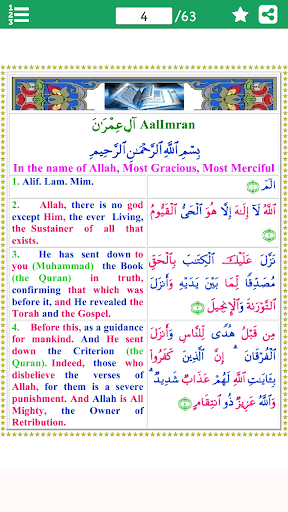 1 2 3
4 /63
آلِ عِمْرَٰنَ AalImran
بِسْمِ اللَّهِ الرَّحْمَٰنِ الرَّحِيمِ
In the name of Allah, Most Gracious, Most Merciful
1. Alif. Lam. Mim.
الٓمٓ ۝١
2. Allah, there is no god
except Him, the ever Living,
the Sustainer of all that
exists.
ٱللَّهُ لَآ إِلَٰهَ إِلَّا هُوَ ٱلْحَىُّ ٱلْقَيُّومُ
۝٢
3. He has sent down to
you (Muhammad) the Book
(the Quran) in truth,
confirming that which was
before it, and He revealed the
Torah and the Gospel.
نَزَّلَ عَلَيْكَ ٱلْكِتَٰبَ بِٱلْحَقِّ
مُصَدِّقًا لِّمَا بَيْنَ يَدَيْهِ وَأَنزَلَ
ٱلتَّوْرَىٰةَ وَٱلْإِنجِيلَ ۝٣
4. Before this, as a guidance
for mankind. And He sent
down the Criterion (the
Quran). Indeed, those who
disbelieve the verses of
Allah, for them is a severe
punishment. And Allah is All
Mighty, the Owner of
Retribution.
مِن قَبْلُ هُدًى لِّلنَّاسِ وَأَنزَلَ
ٱلْفُرْقَانَ ۗ إِنَّ ٱلَّذِينَ كَفَرُوا۟
بِـَٔايَٰتِ ٱللَّهِ لَهُمْ عَذَابٌ شَدِيدٌ ۗ
وَٱللَّهُ عَزِيزٌ ذُو ٱنتِقَامٍ ۝٤